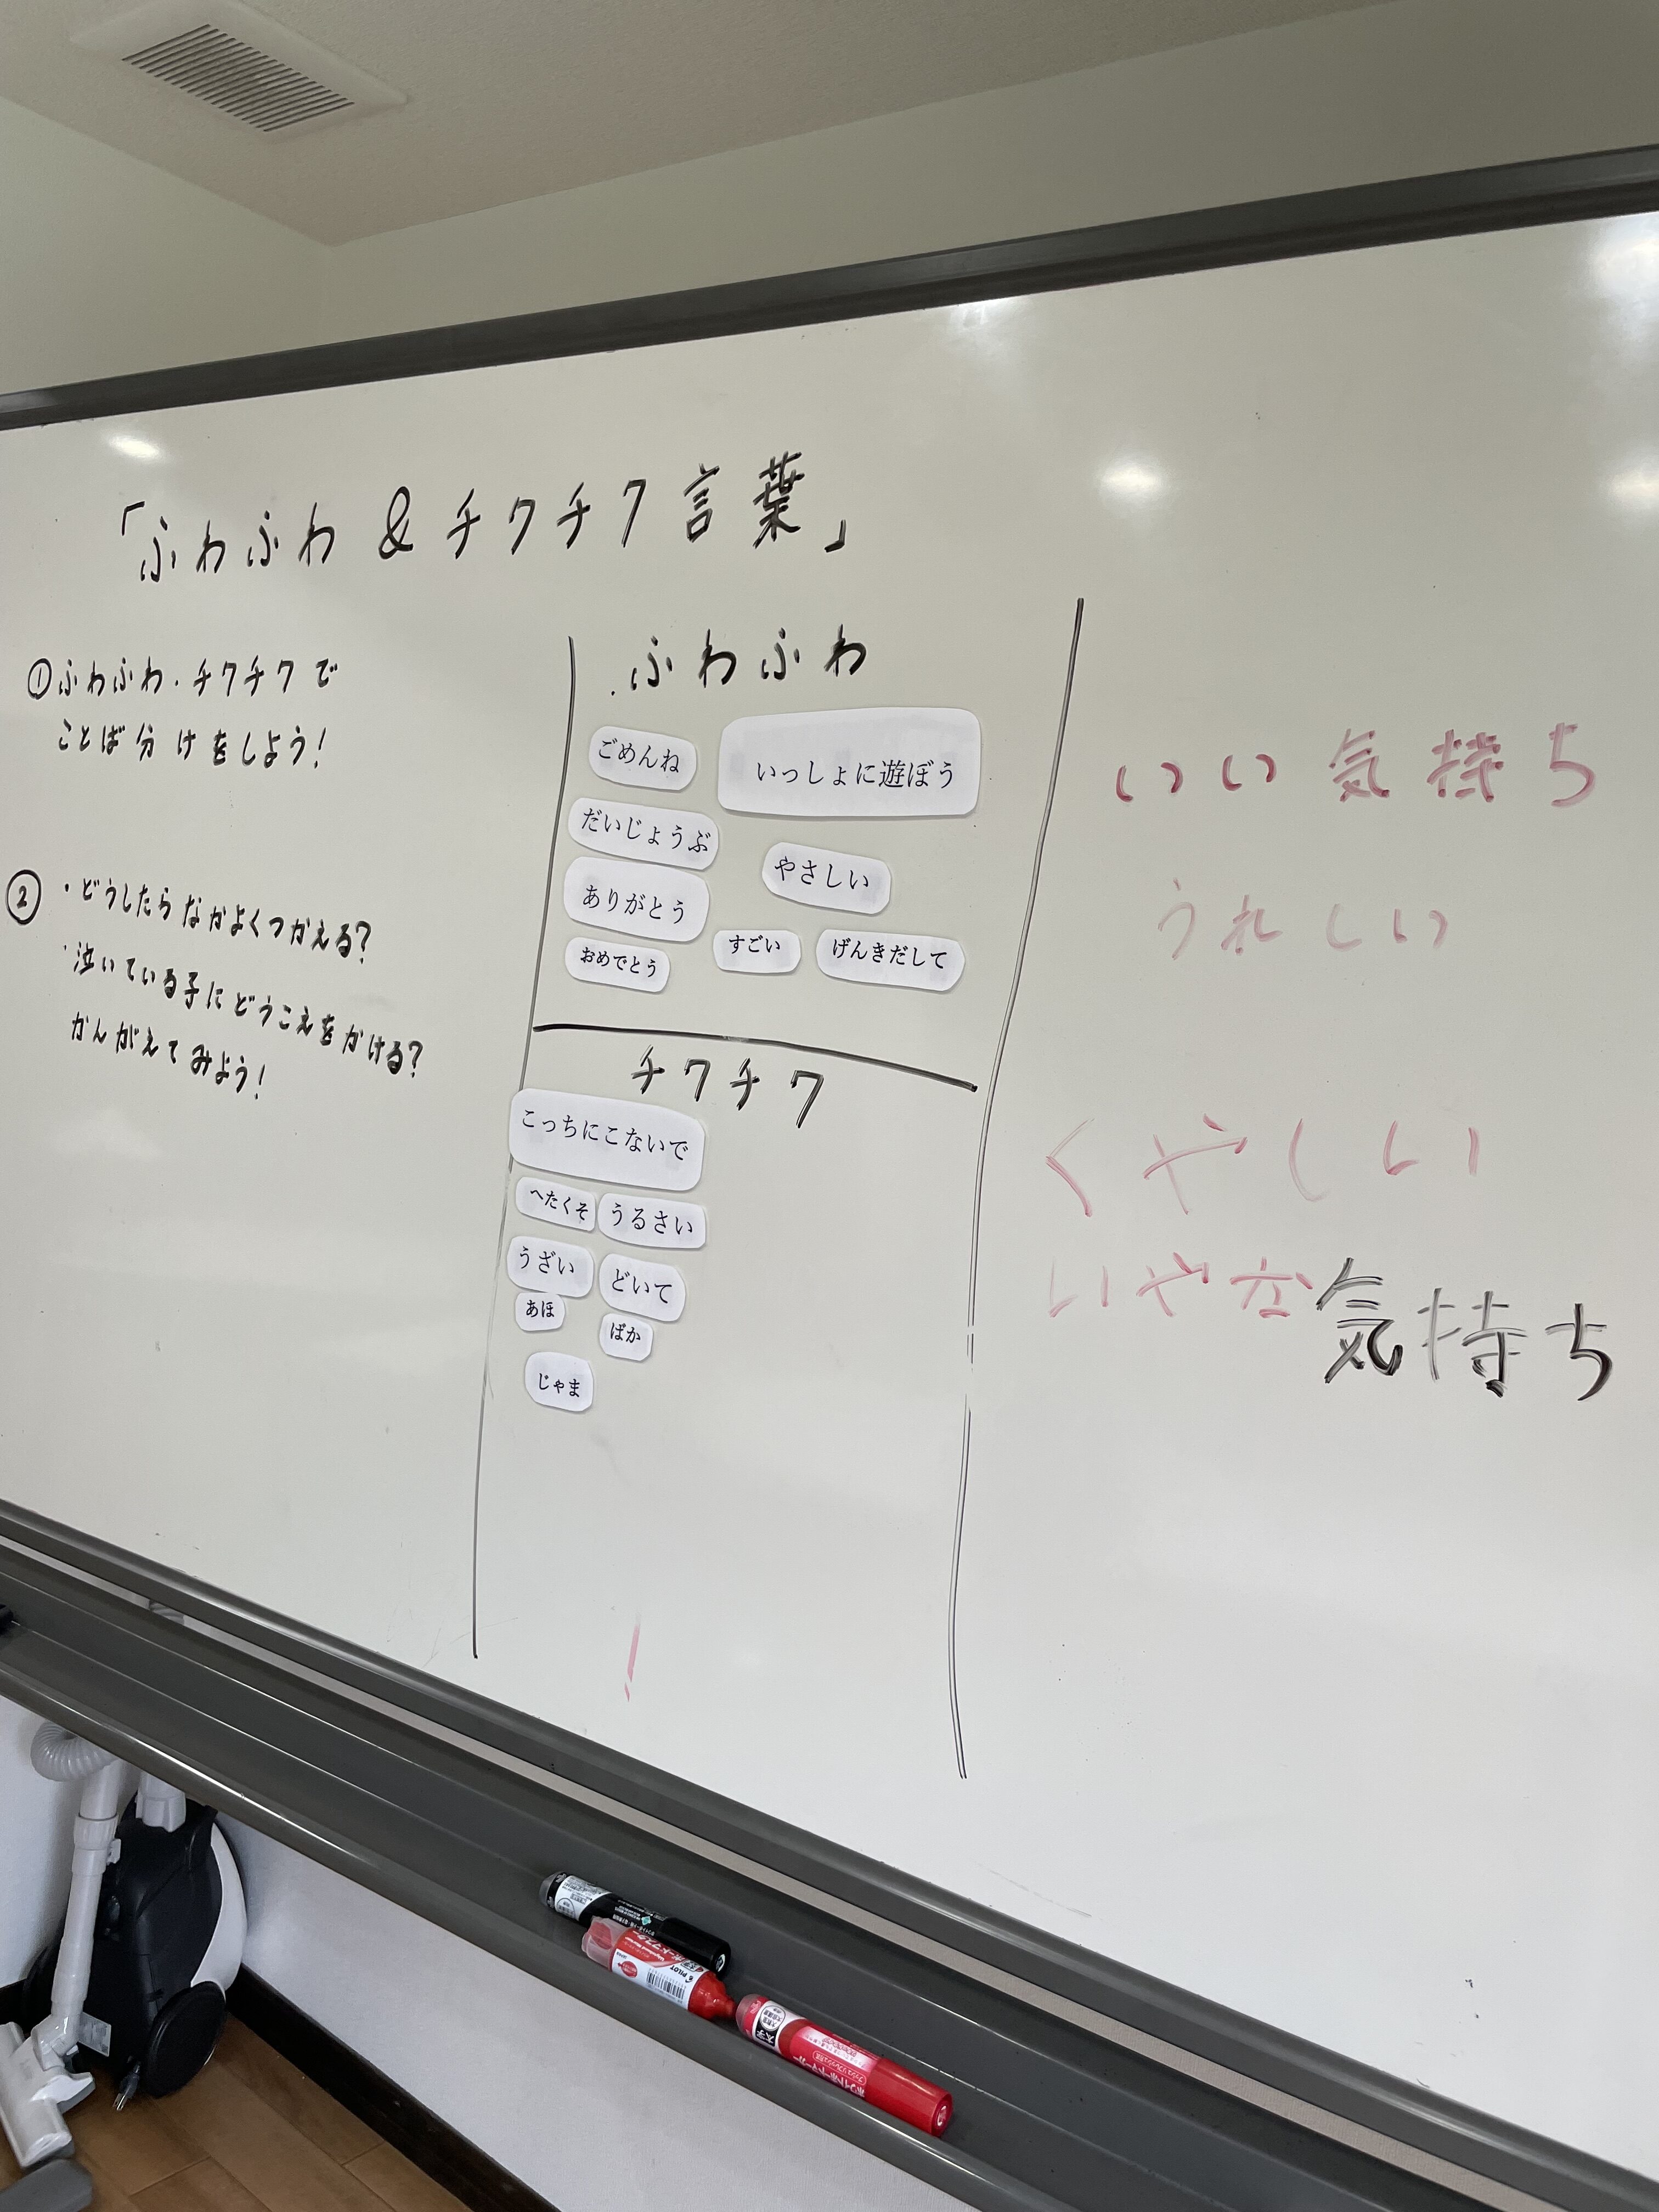 「ふわふわ & チクチク言葉」
①ふわふわ・チクチクで
ことば分けをしよう!
②・どうしたらなかよくつかえる?
・泣いている子にどうこえをかける?
かんがえてみよう!
ふわふわ
ごめんね
いっしょに遊ぼう
だいじょうぶ
やさしい
ありがとう
すごい
げんきだして
おめでとう
チクチク
こっちにこないで
へたくそ
うるさい
うざい
どいて
あほ
ばか
じゃま
いい気持ち
うれしい
くやしい
いやな気持ち
PILOT